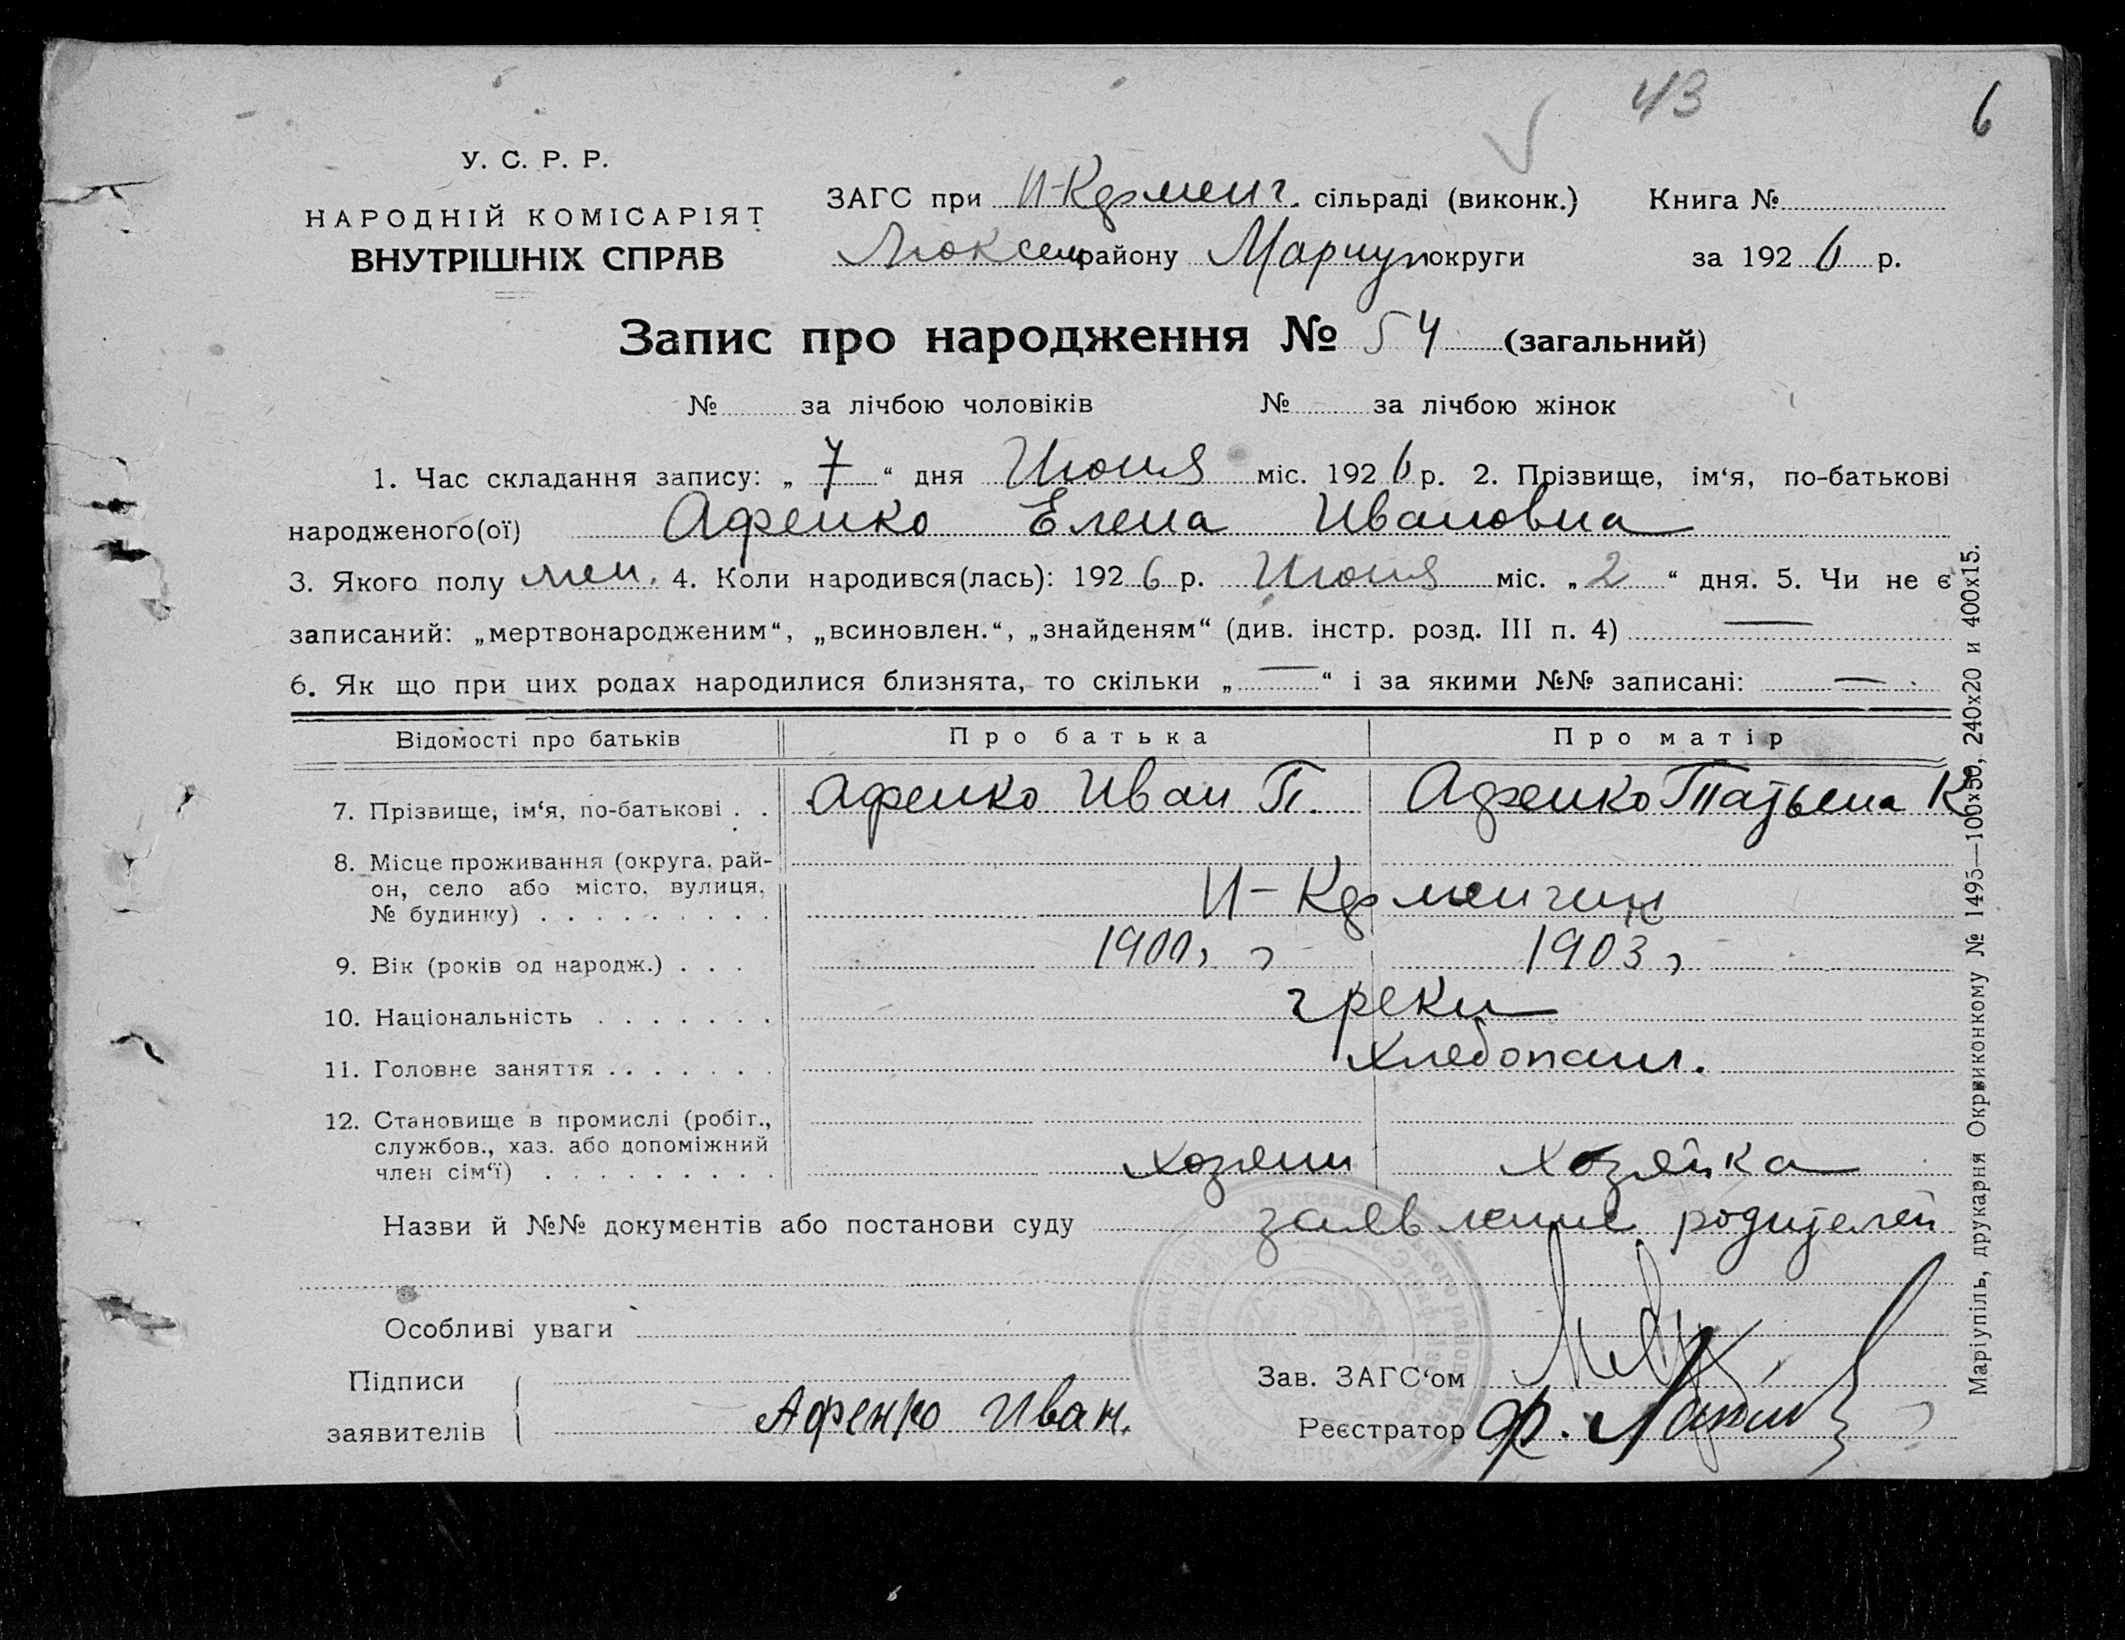 43
6
У. С. Р. Р.
НАРОДНІЙ КОМІСАРІЯТ
ВНУТРІШНІХ СПРАВ
ЗАГС при сільраді (виконк.) Книга №
Люксем району Мариуп округи за 1926 р.
Запис про народження № 54 (загальний)
№ за лічбою чоловіків № за лічбою жінок
1. Час складання запису: „7“ дня Июня міс. 1926 р. 2. Прізвище, ім‘я, по-батькові
народженого(ої) Афенко Елена Ивановна
3. Якого полу жен. 4. Коли народився(лась): 1926 р. Июня міс. „2“ дня. 5. Чи не є
записаний: „мертвонародженим“, „всиновлен.“, „знайденям“ (див. інстр. розд. III п. 4) —
6. Як що при цих родах народилися близнята, то скільки „—“ і за якими №№ записані: —
Відомості про батьків Про батька Про матір
7. Прізвище, ім‘я, по-батькові . . Афенко Иван П. Афенко Татьена К
8. Місце проживання (округа, рай-
он, село або місто, вулиця,
№ будинку) . . . . . . . . .
9. Вік (років од народж.) . . . 1900 г 1903 г
10. Національність . . . . . . . греки
11. Головне заняття . . . . . . . хлебопаш.
12. Становище в промислі (робіт.,
службов., хаз. або допоміжний
член сім‘ї) . . . . . . . . . хозяин хозяйка
Назви й №№ документів або постанови суду заевление родителей
Особливі уваги
Підписи
заявителів Афенко Иван.
Зав. ЗАГС‘ом
Реєстратор Ф.
Маріупіль, друкарня Окрвиконкому № 1495—100х50, 240х20 и 400х15.